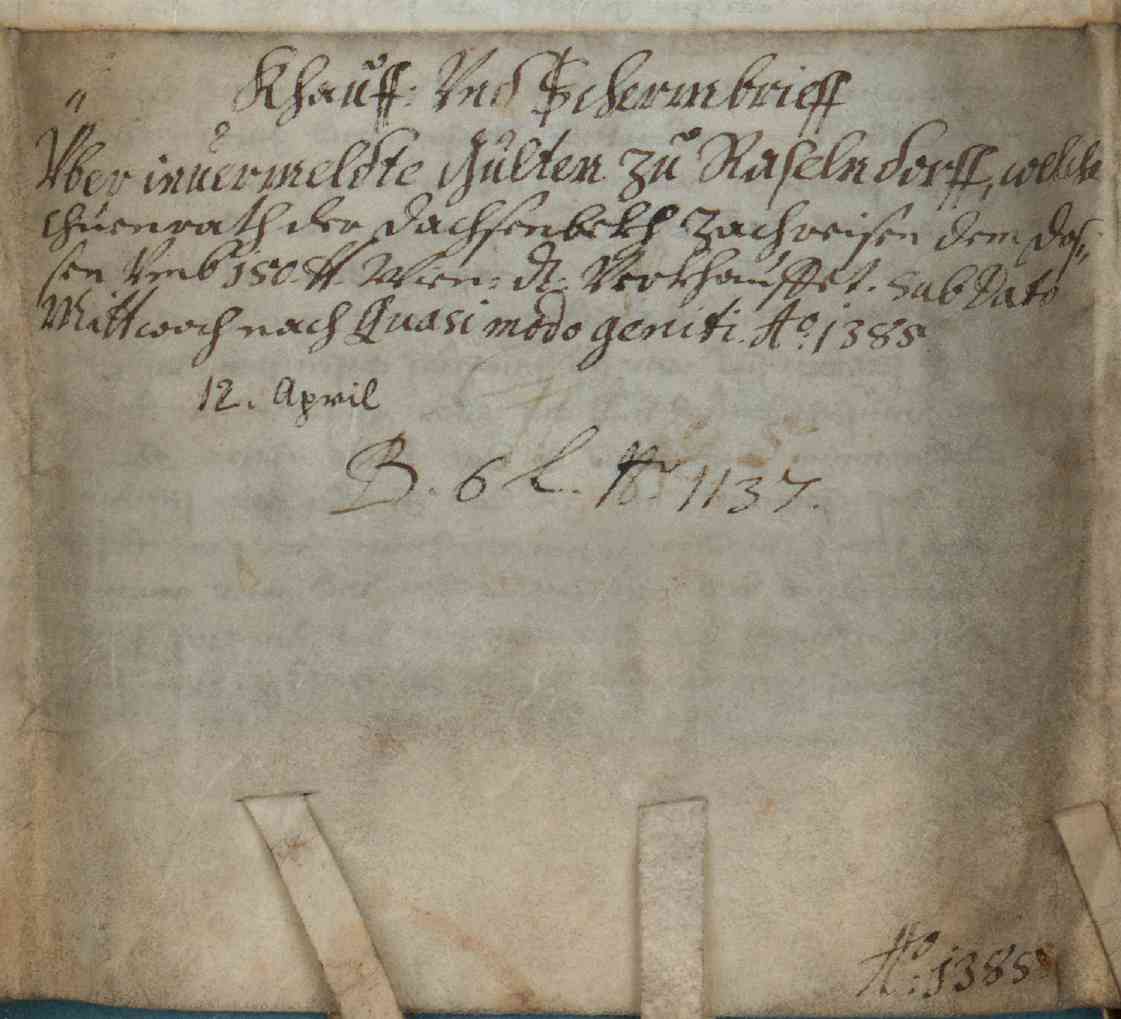 Khauff: Und Schermbrieff
Uber inuermeldte Gülten zu Raselndorff, welche
Chuenrath der Dachsenbekh Zachreisen dem Dos=
sen Umb 150 ℔ Wien: ₰: Verkhauffet. Sub Dato
Mittwoch nach Quasi modo geniti. Ao. 1385
12. April
B. 6 L. Nr. 1137.
Ao: 1385